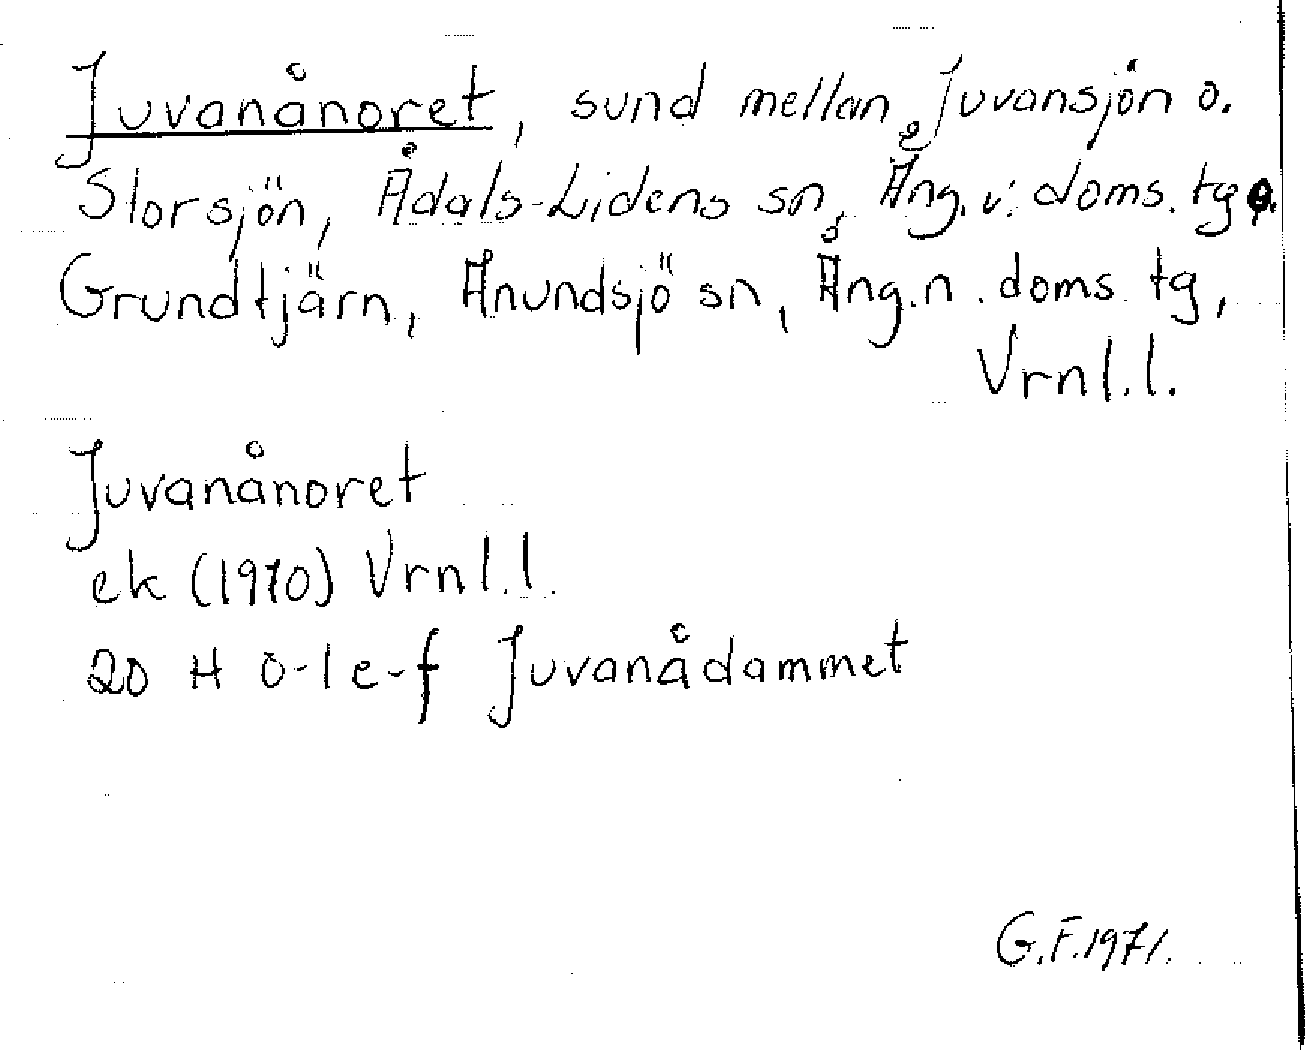 Juvanånoret, sund mellan Juvansjön o.
Storsjön, Ådals-Lidens sn, Ång. v. doms. tg o.
Grundtjärn, Anundsjö sn, Ång. n. doms. tg,
Vrnl.l.
Juvanånoret
ek (1970) Vrnl.l.
20 H 0-1 e-f Juvanådammet
G.F. 1971.